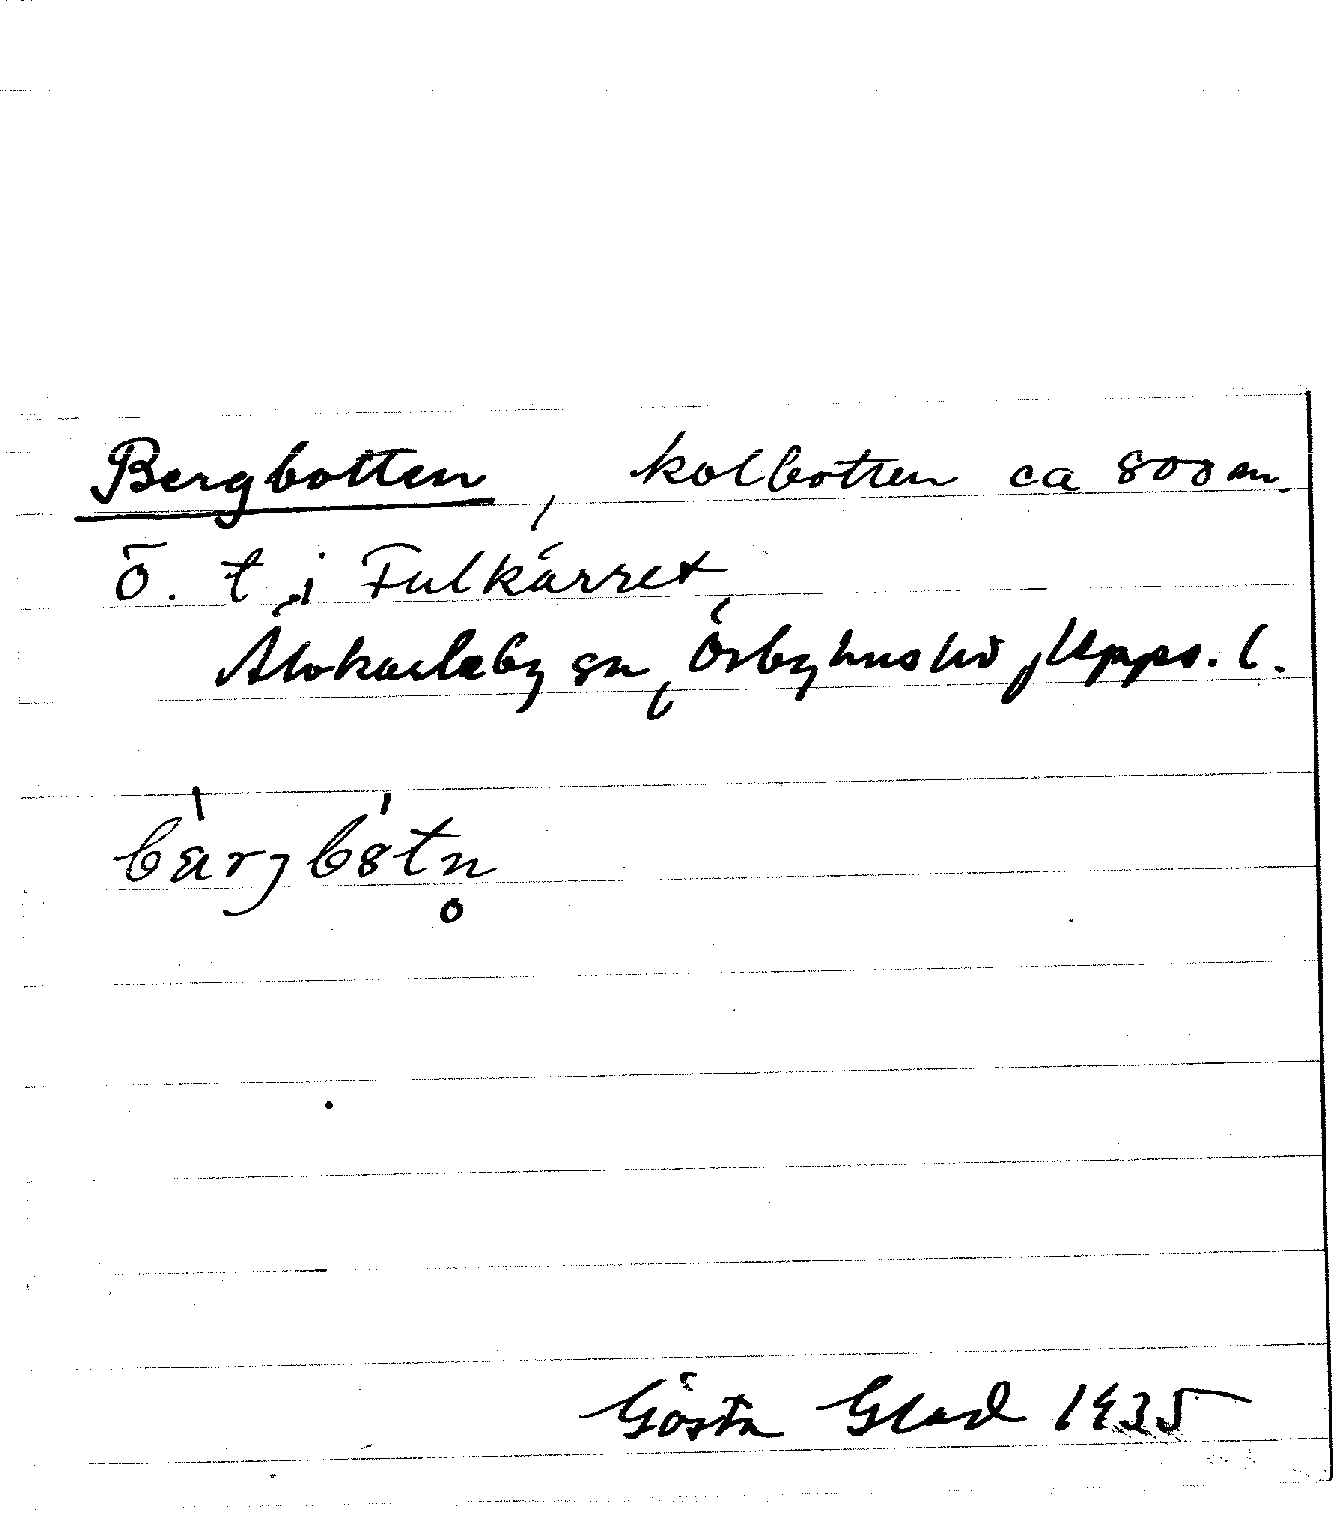 Bergbotten, kolbotten ca 800 m.
Ö. t, i Fulkärret
Älvkarleby sn, Örbyhus hd, Upps. l.
bàrjbótn̥
Gösta Glad 1935